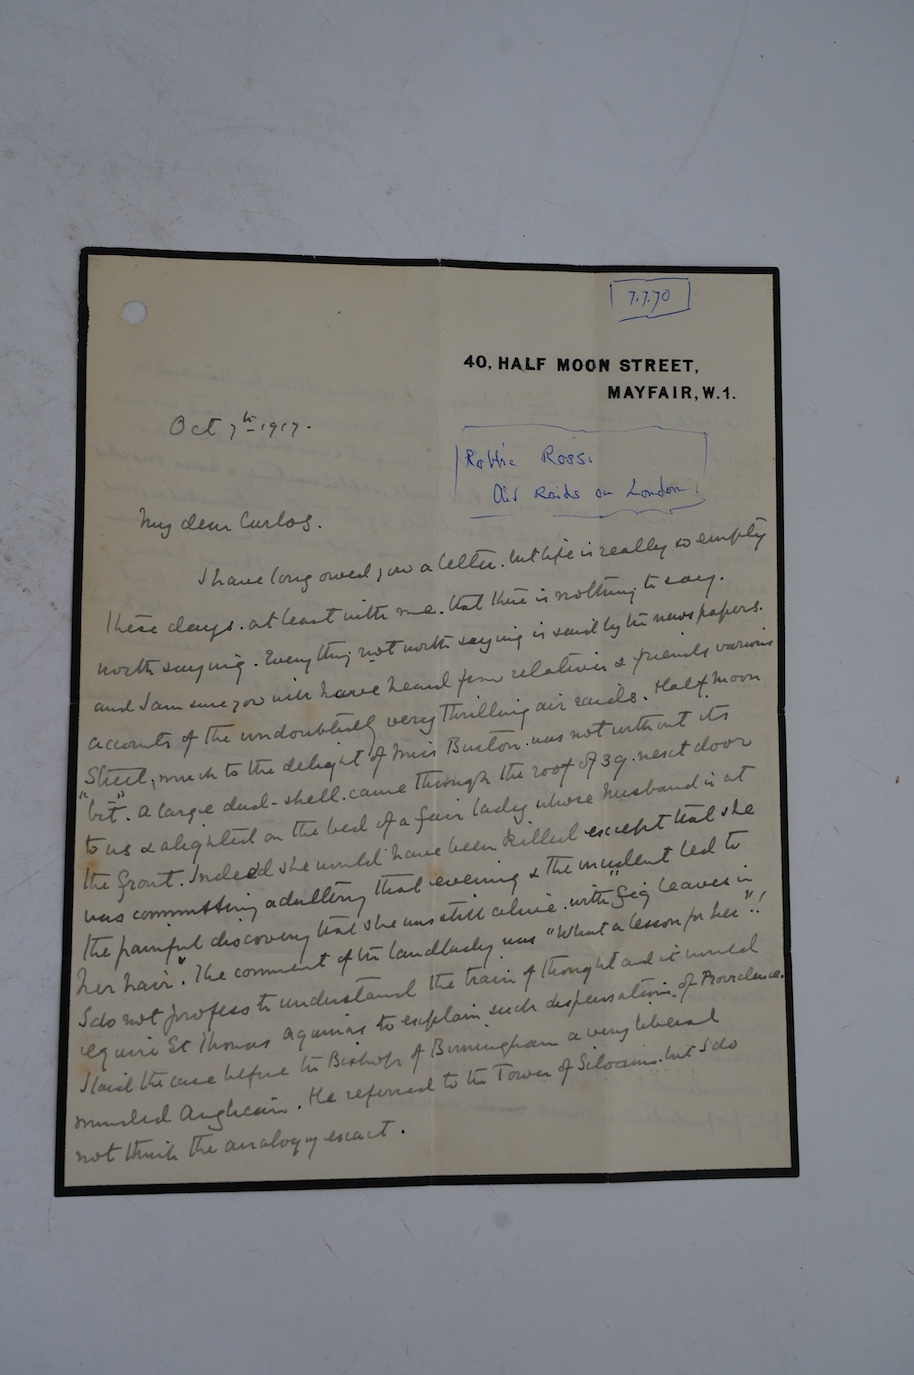 7.7.70
40, HALF MOON STREET,
MAYFAIR, W.1.
Oct 7th 1917.
Robbie Ross.
Air Raids on London
My dear Carlos.
I have long owed you a letter. but life is really so empty
these days. at least with me. that there is nothing to say.
worth saying. Everything not worth saying is said by the newspapers.
and I am sure you will have heard from relatives & friends various
accounts of the undoubtedly very thrilling air raids. Half moon
Street, much to the delight of Miss Burton. was not without its
"bit". A large dud-shell. came through the roof of 39. next door
to us & alighted on the bed of a fair lady whose husband is at
the front. Indeed she would have been killed except that she
was committing adultery that evening & the incident led to
the painful discovery that she was still alive. with "fig leaves in
her hair". The comment of the landlady was "What a lesson for her"!
I do not profess to understand the train of thought and it would
require St Thomas Aquinas to explain such dispensation of Providence.
I laid the case before the Bishop of Birmingham a very liberal
minded Anglican. He referred to the Tower of Siloam. but I do
not think the analogy exact.